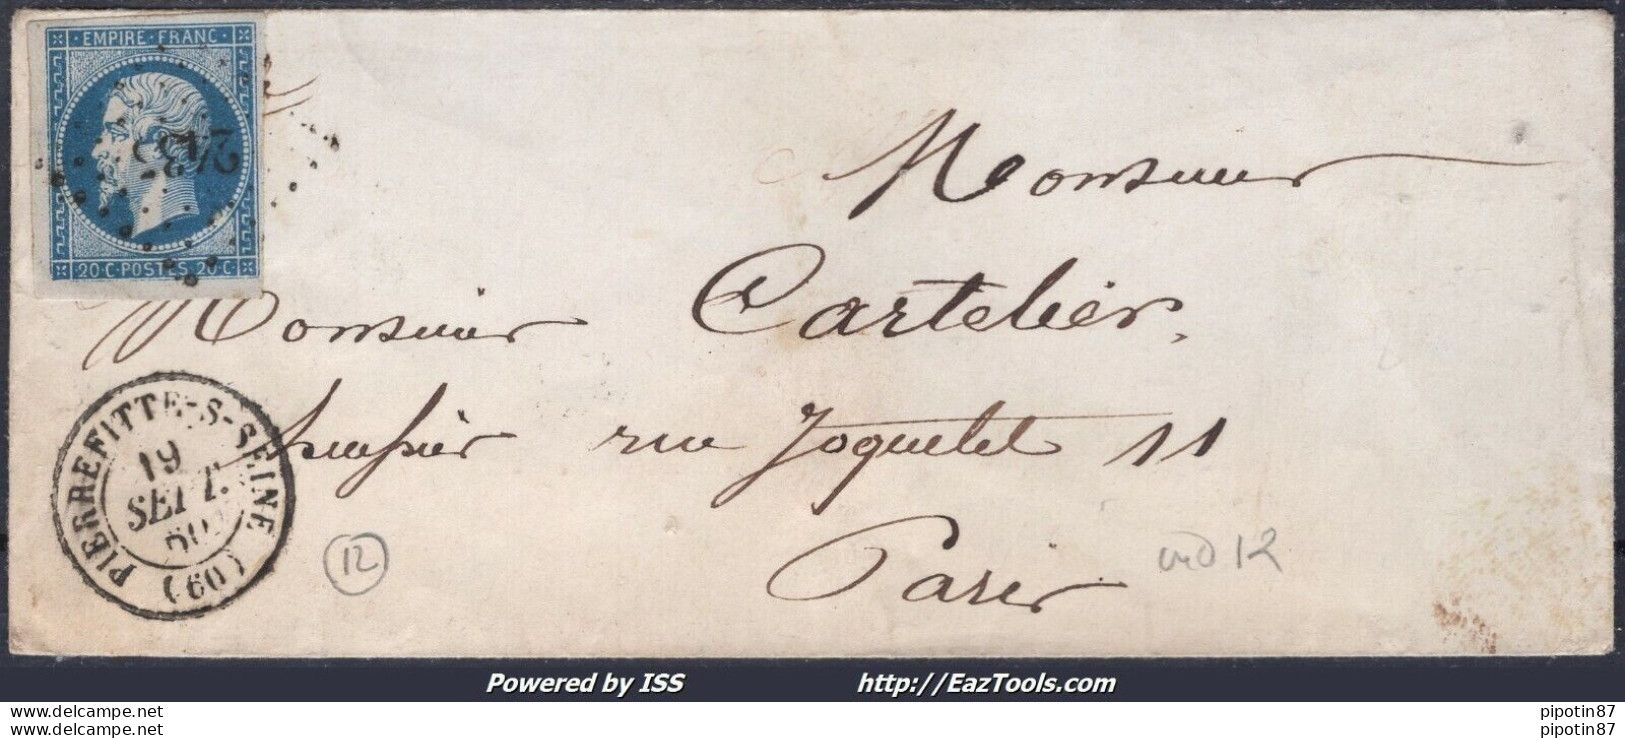 EMPIRE · FRANC ·
20·C·POSTES 20·C
Monsieur
Monsieur Cartelier.
rue Joquelet 11
Paris
PIERREFITTE-S-SEINE (60)
19
SEPT.
60
12
ind 12
Powered by ISS http://EazTools.com
www.delcampe.net pipotin87
www.delcampe.net pipotin87